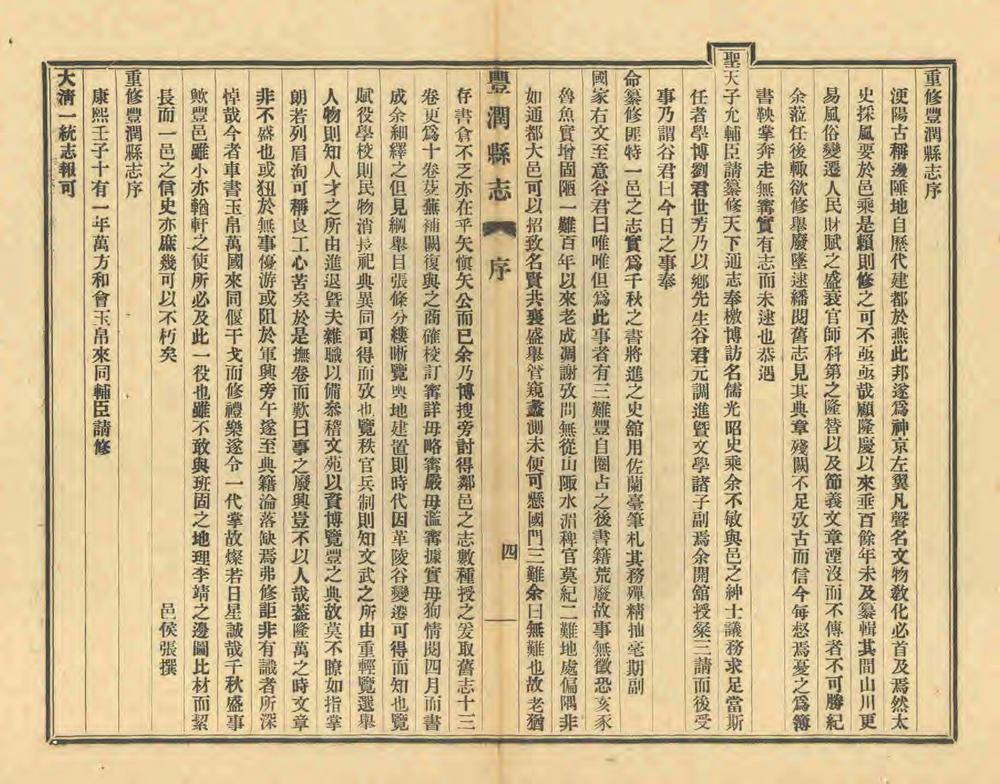 重修豐潤縣志序
浭陽古稱邊陲地自歷代建都於燕此邦遂爲神京左翼凡聲名文物敎化必首及焉然太
史採風要於邑乘是賴則修之可不亟亟哉顧隆慶以來垂百餘年未及纂輯其間山川更
易風俗變遷人民財賦之盛衰官師科第之隆替以及節義文章湮沒而不傳者不可勝紀
余蒞任後輙欲修舉廢墜逮繙閱舊志見其典章殘闕不足攷古而信今每惄焉憂之爲簿
書鞅掌奔走無寗實有志而未逮也恭遇
聖天子允輔臣請纂修天下通志奉檄博訪名儒光昭史乘余不敏與邑之紳士議務求足當斯
任者學博劉君世芳乃以鄉先生谷君元調進曁文學諸子副焉余開舘授粲三請而後受
事乃謂谷君曰今日之事奉
命纂修匪特一邑之志實爲千秋之書將進之史舘用佐蘭臺筆札其務殫精抽毫期副
國家右文至意谷君曰唯唯但爲此事者有三難豐自圈占之後書籍荒廢故事無徵恐亥豕
魯魚實增固陋一難百年以來老成凋謝攷問無從山陬水湄稗官莫紀二難地處偏隅非
如通都大邑可以招致名賢共襄盛舉管窺蠡測未便可懸國門三難余曰無難也故老猶
豐潤縣志
序
四
存書倉不乏亦在乎矢愼矢公而已余乃博搜旁討得鄰邑之志數種授之爰取舊志十三
卷更爲十卷芟蕪補闕復與之商確校訂寗詳毋略寗嚴毋濫寗據實毋狥情閱四月而書
成余細繹之但見綱舉目張條分縷晰覽輿地建置則時代因革陵谷變遷可得而知也覽
賦役學校則民物消長祀典異同可得而攷也覽秩官兵制則知文武之所由重輕覽選舉
人物則知人才之所由進退曁夫雜職以備叅稽文苑以資博覽豐之典故莫不瞭如指掌
朗若列眉洵可稱良工心苦矣於是撫卷而歎曰事之廢興豈不以人哉蓋隆萬之時文章
非不盛也或狃於無事優游或阻於軍興旁午遂至典籍淪落缺焉弗修詎非有識者所深
悼哉今者車書玉帛萬國來同偃干戈而修禮樂遂令一代掌故燦若日星誠哉千秋盛事
歟豐邑雖小亦輶軒之使所必及此一役也雖不敢與班固之地理李靖之邊圖比材而絜
長而一邑之信史亦庶幾可以不朽矣
邑侯張撰
重修豐潤縣志序
康熙壬子十有一年萬方和會玉帛來同輔臣請修
大淸一統志報可